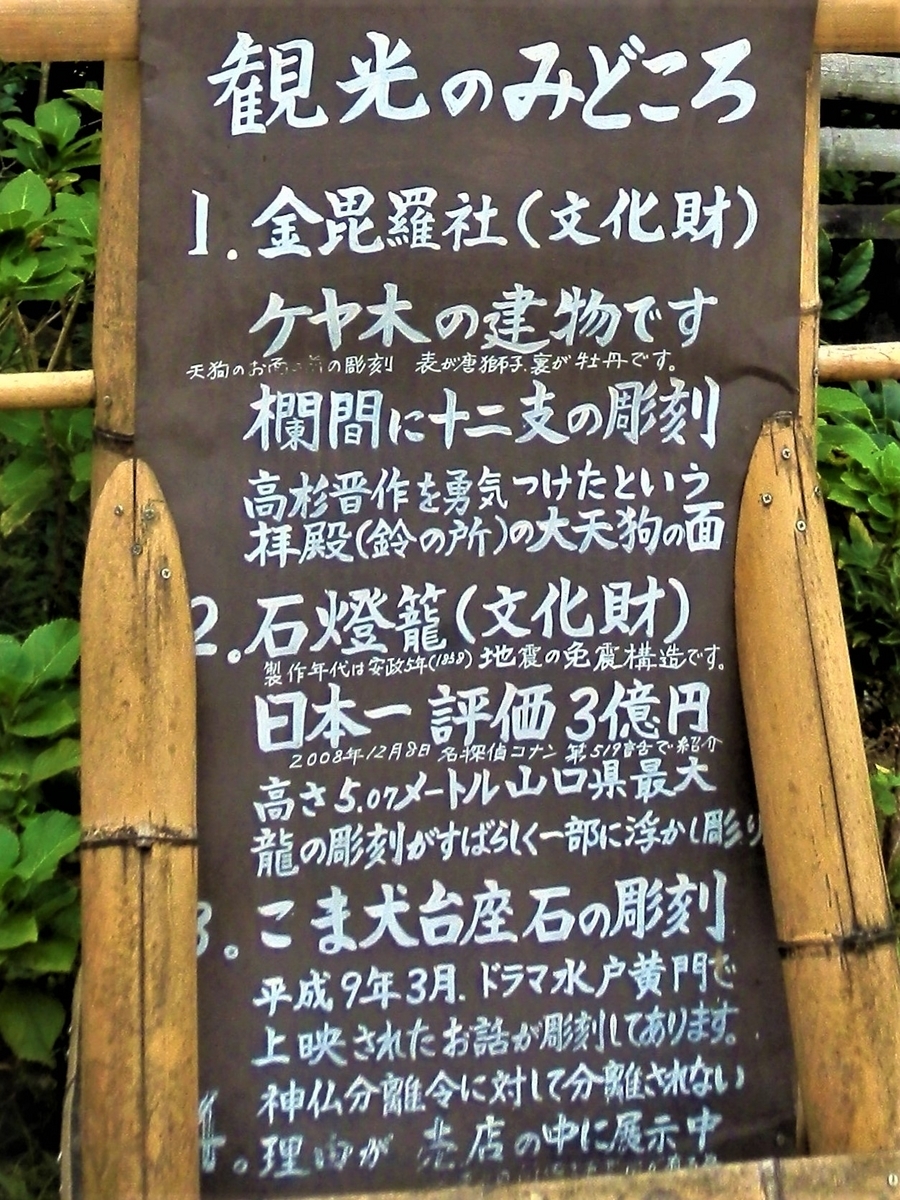 観光のみどころ
1.金毘羅社(文化財)
ケヤ木の建物です
天狗のお面の彫刻 表が唐獅子.裏が牡丹です。
欄間に十二支の彫刻
高杉晋作を勇気つけたという
拝殿(鈴の所)の大天狗の面
2.石燈籠(文化財)
製作年代は安政5年(1858) 地震の免震構造です。
日本一 評価3億円
2008年12月8日 名探偵コナン 第519話で紹介
高さ5.07メートル山口県最大
龍の彫刻がすばらしく一部に浮かし彫り
3.こま犬台座石の彫刻
平成9年3月.ドラマ水戸黄門で
上映されたお話が彫刻してあります。
神仏分離令に対して分離されない
4.理由が 売店の中に展示中